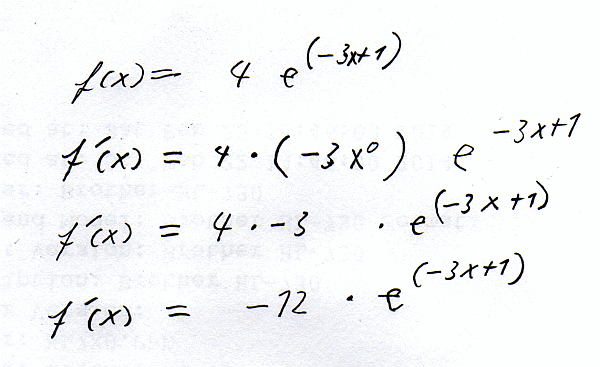 f(x) = 4 e^(-3x+1)
f'(x) = 4 · (-3x⁰) e^-3x+1
f'(x) = 4 · -3 · e^(-3x+1)
f'(x) = -12 · e^(-3x+1)